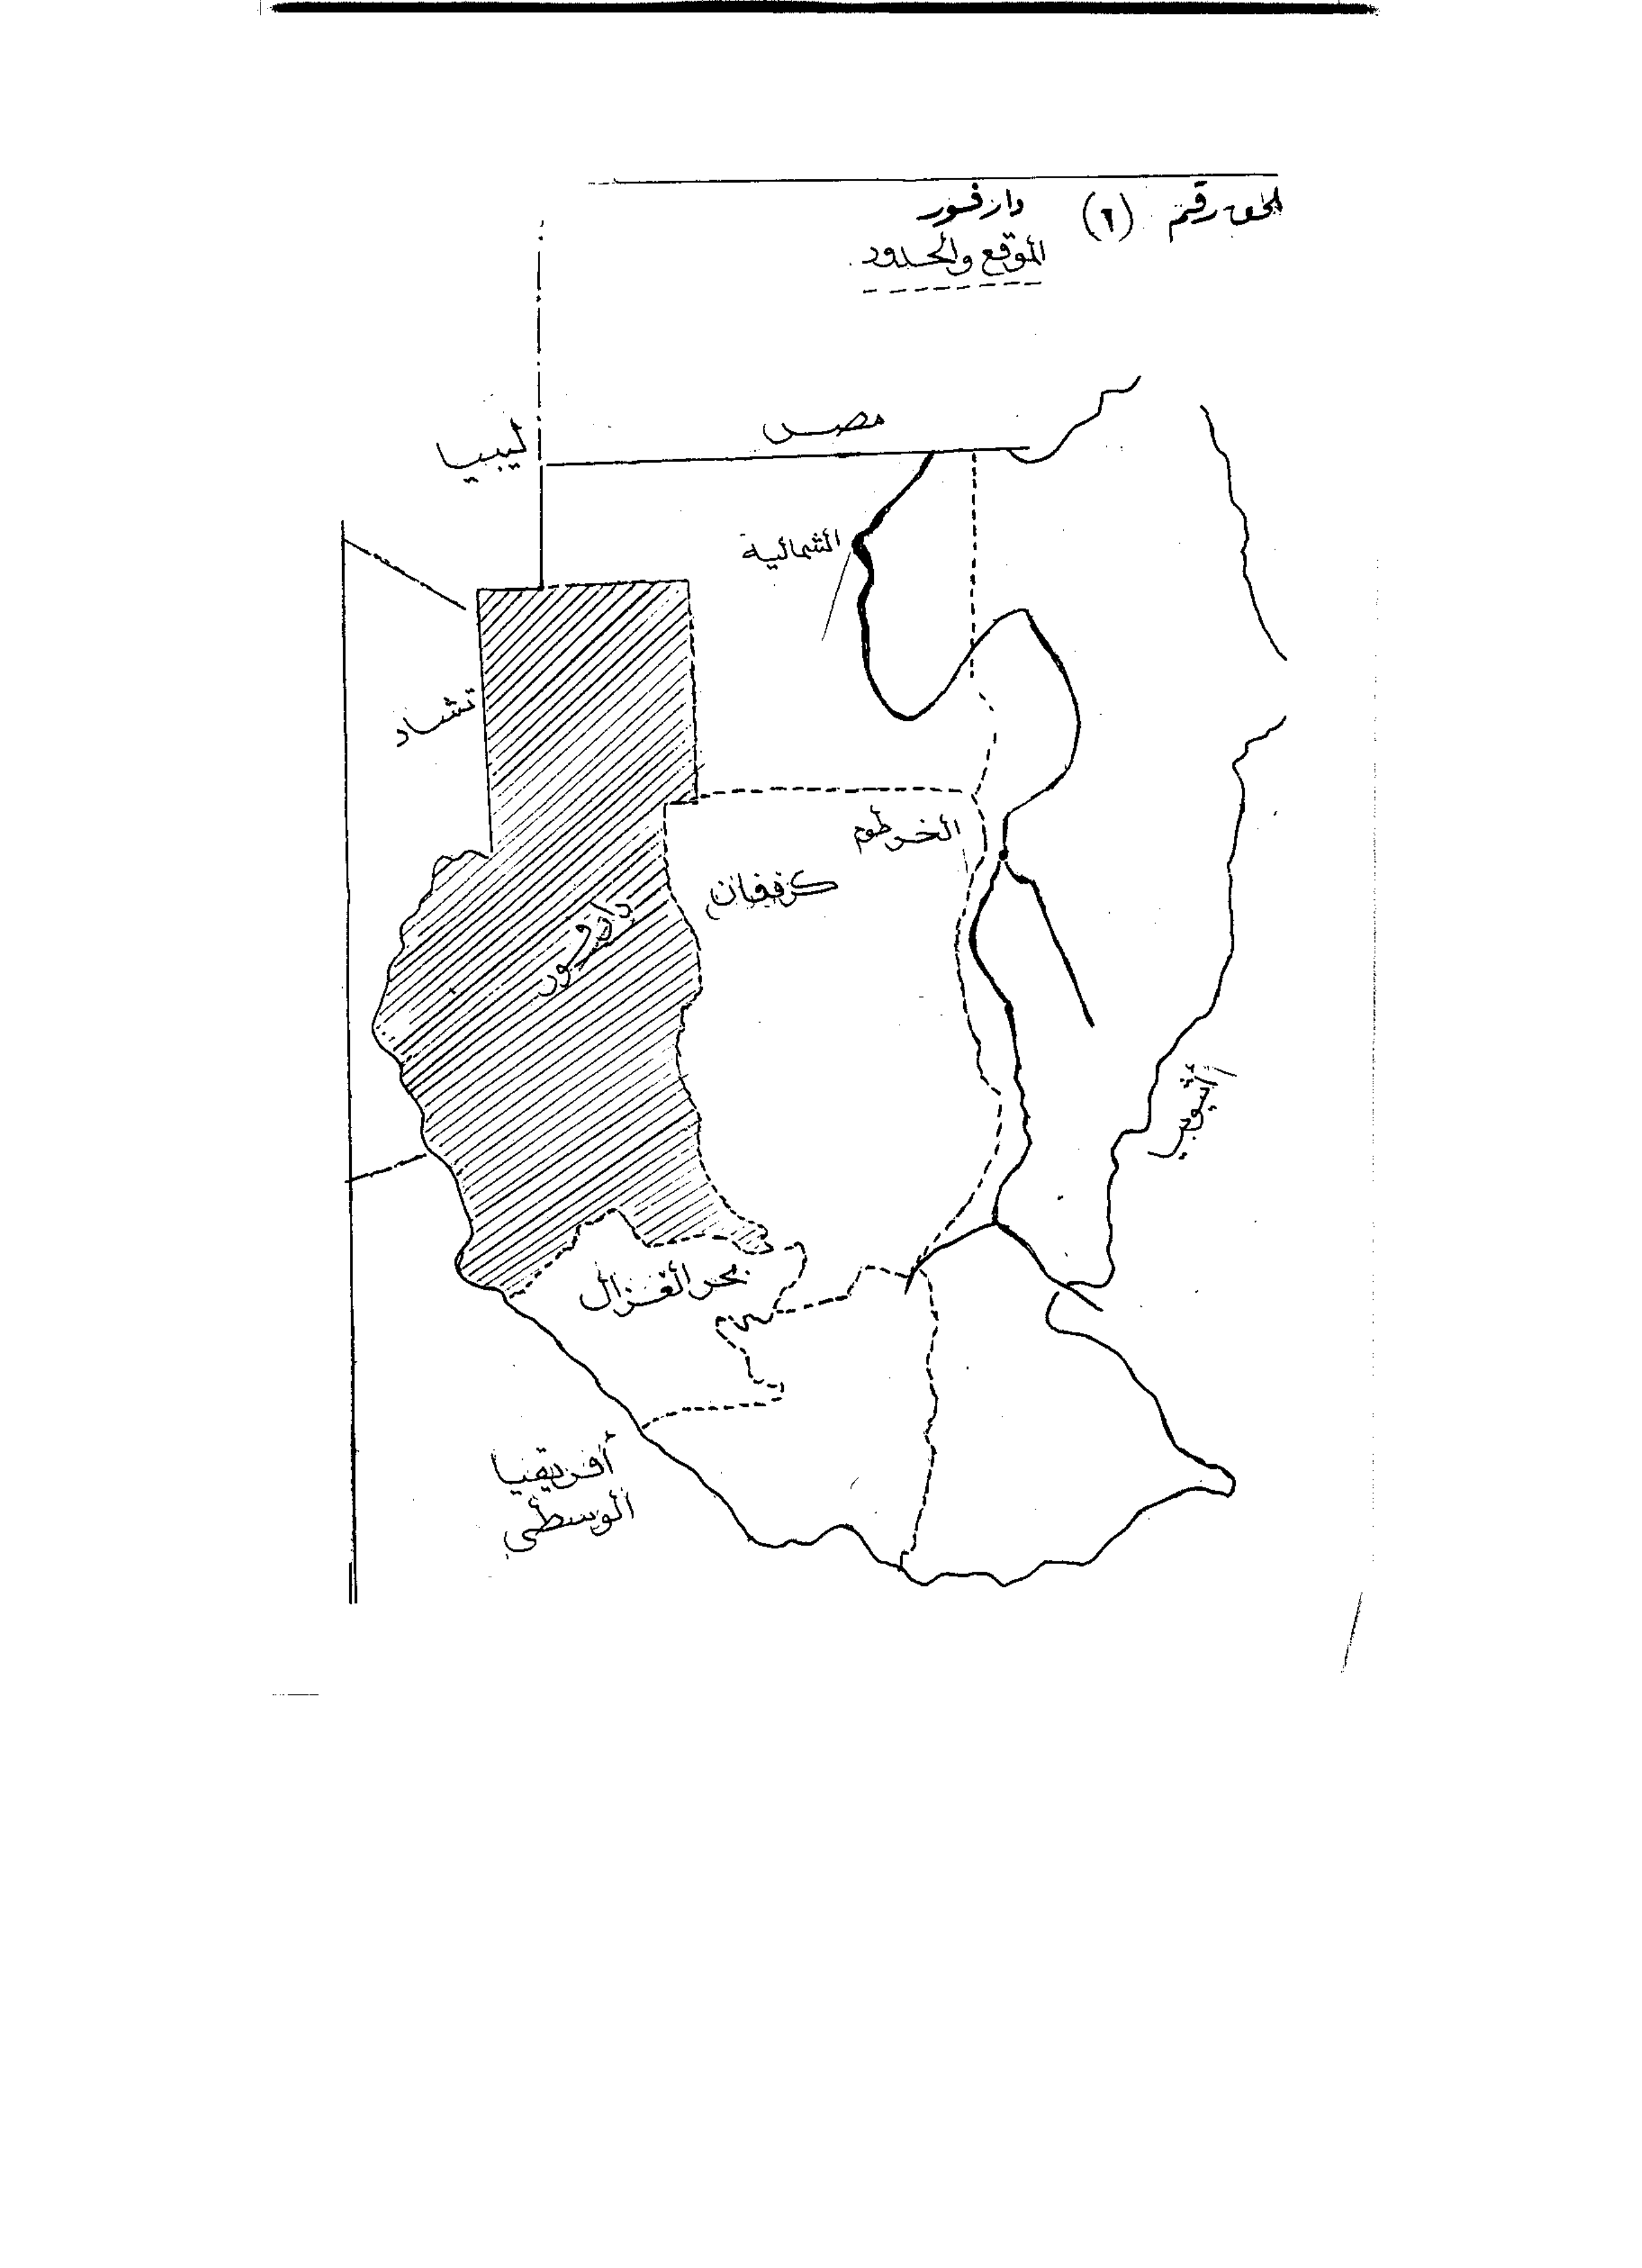 لحق رقم (٢) دارفور
الموقع والحدود
مصر
ليبيا
الشمالية
تشاد
الخرطوم
كردفان
دارفور
أثيوبيا
بحر الغزال
أفريقيا
الوسطى